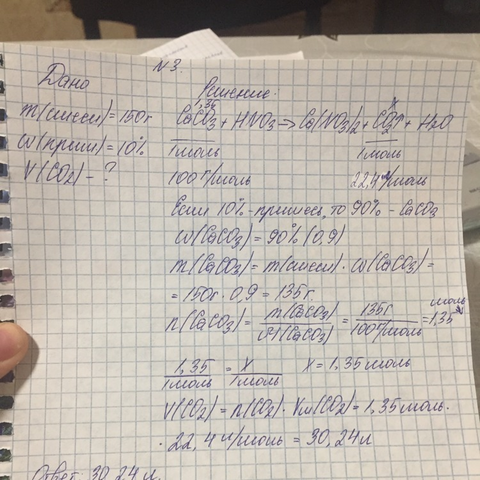 N3.
Дано
Решение
m(смеси)=150г
1,35 x
CaCO3 + HNO3 → Ca(NO3)2 + CO2↑ + H2O
w(прим)=10%
1моль 1моль
V(CO2) - ?
100г/моль 22,4л/моль
Если 10% - примесь, то 90% - CaCO3
w(CaCO3) = 90% (0,9)
m(CaCO3) = m(смеси) · w(CaCO3) =
= 150г · 0,9 = 135г.
n(CaCO3) = m(CaCO3) / M(CaCO3) = 135г / 100г/моль = 1,35 моль
1,35 / 1моль = x / 1моль x = 1,35 моль
V(CO2) = n(CO2) · Vm(CO2) = 1,35 моль ·
· 22,4 л/моль = 30,24л
Ответ 30,24 л.